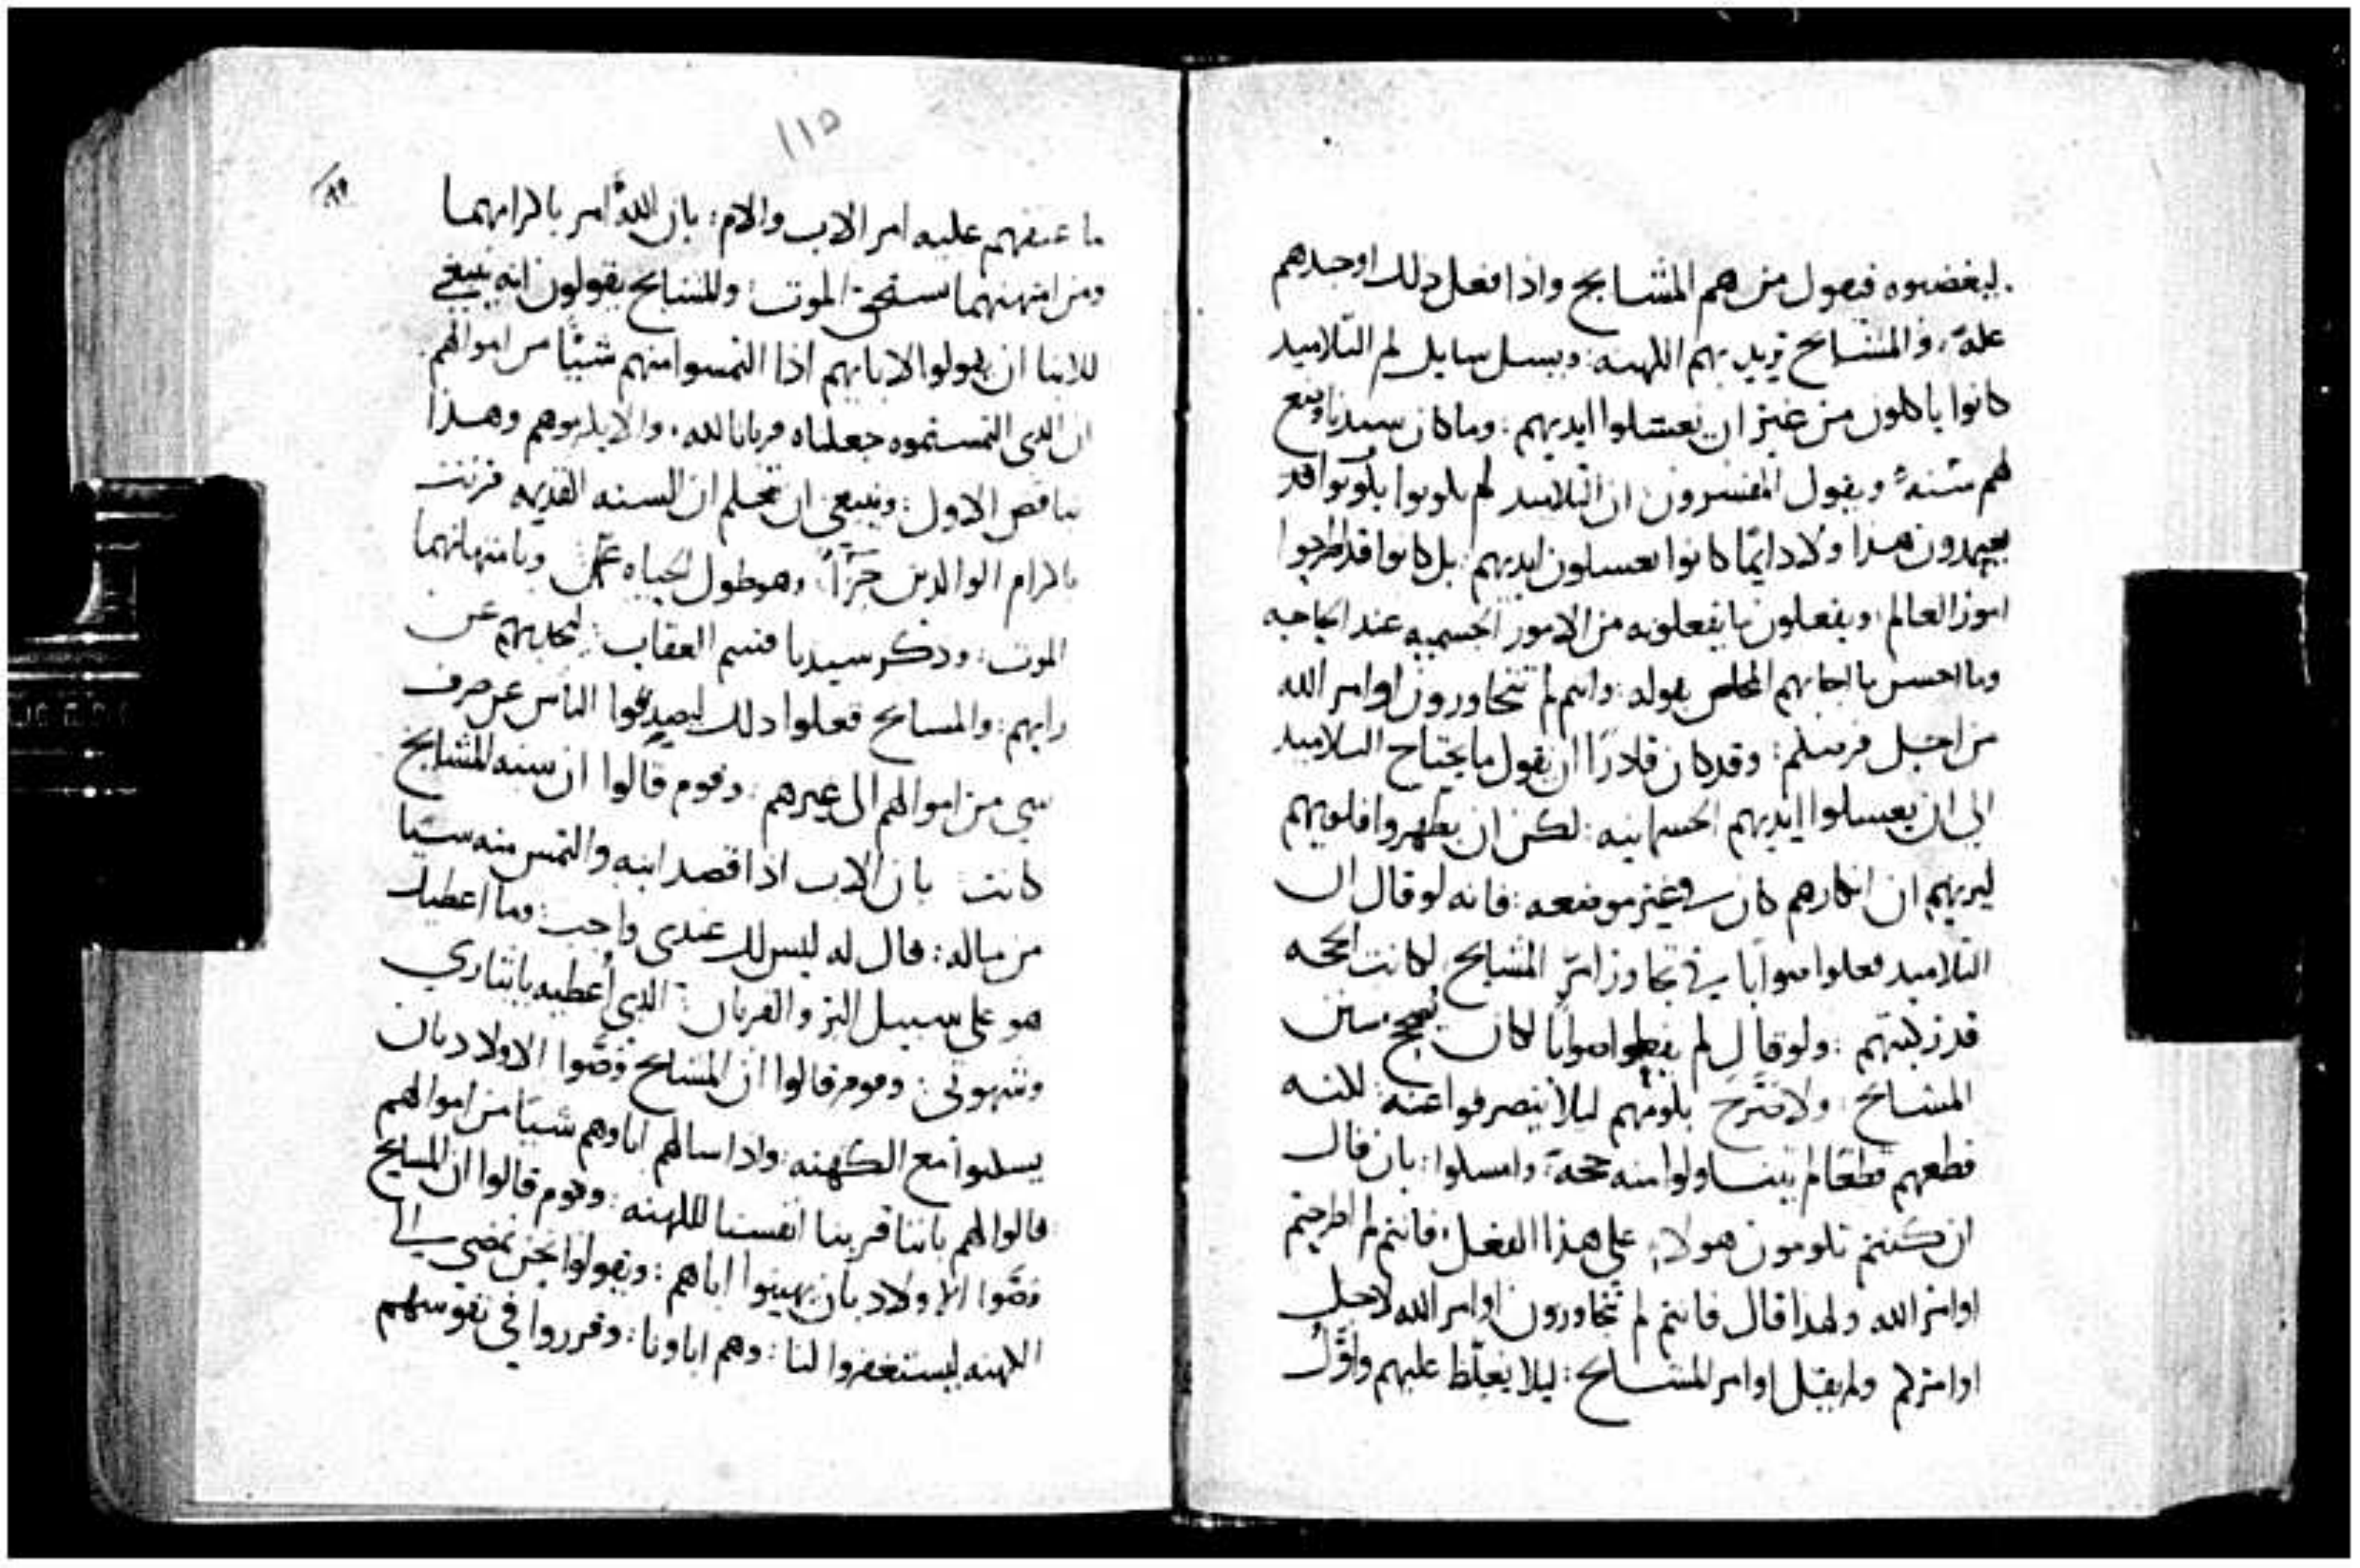 ليغضبوه فيقول من هم المشايخ واذا فعل ذلك اوجدهم
علةً، والمشايخ يريد بهم الكهنه: ويسل سايل لم التلاميد
كانوا ياكلون من غير ان يغسلوا ايديهم: وما كان سيدنا وضع
لهم سنه ويقول المفسرون ان التلاميد لم يكونوا
يعتمدون هدا ولا دايمًا كانوا يغسلون ايديهم: بل كانوا قد اطرحوا
امور العالم: ويفعلون ما يفعلونه من الامور الجسميه عند الحاجه
وما احسن ما اجابهم المخلص بقوله: وانتم لم تتجاوزون اوامر الله
من اجل فرضكم: وقد كان قادرًا ان يقول ما يحتاج التلاميد
الى ان يغسلوا ايديهم الجسمانيه: لكن ان يطهروا قلوبهم
ليريهم ان انكارهم كان في غير موضعه: فانه لو قال ان
التلاميد فعلوا صوابًا في تجاوز امر المشايخ لكانت الحجه
قد ركبتهم: ولو قال لم يفعلوا صوابا لكان يصحح سنن
المشايخ: ولا صرح بلومهم ليلا ينصرفوا عنه: لكنه
قطعهم قطعًا لم يتناولوا منه حجةً وامسكوا: بان قال
ان كنتم تلومون هولاء على هذا الفعل: فانتم لم اطرحتم
اوامر الله ولهدا قال فانتم لم تتجاوزون اوامر الله لاجل
اوامركم ولم يقل اوامر المشايخ: ليلا يغلظ عليهم واوّل
١١٥
ما عنفهم عليه امر الاب والام: بان الله امر باكرامهما
ومن امتهنهما استحق الموت: والمشايخ يقولون انه ينبغي
للابنا ان يقولوا لابايهم اذا التمسوا منهم شيئًا من اموالهم
ان الدي التمستموه جعلناه قربانا لله، والا يكرموهم وهذا
يناقض الاول: وينبغي ان تعلم ان السنه القديمه قرنت
باكرام الوالدين جزآءً: وهو طول الحياه وبامتهانهما
الموت: ودكر سيدنا قسم العقاب: عن
رايهم: والمشايخ فعلوا دلك ليصدفوا الناس عن صرف
شي من اموالهم الى غيرهم: وقوم قالوا ان سنه المشايخ
كانت بان الاب اذا قصد ابنه والتمس منه شيًا
من ماله: قال له ليس لك عندى واجب: وما اعطيك
هو على سبيل البر والقربان: الدي أعطيه بايثاري
وشهوتي: وقوم قالوا ان المشايخ وصّوا الاولاد بان
مع الكهنه: واذا سالهم اباوهم شيًا من اموالهم
قالوا لهم باننا قربنا انفسنا للكهنه: وقوم قالوا ان المشايخ
وصّوا الاولاد بان يهينوا اباهم: ويقولوا نحن نمضي الى
الكهنه ليستغفروا لنا: وهم اباونا: وقرروا في نفوسهم